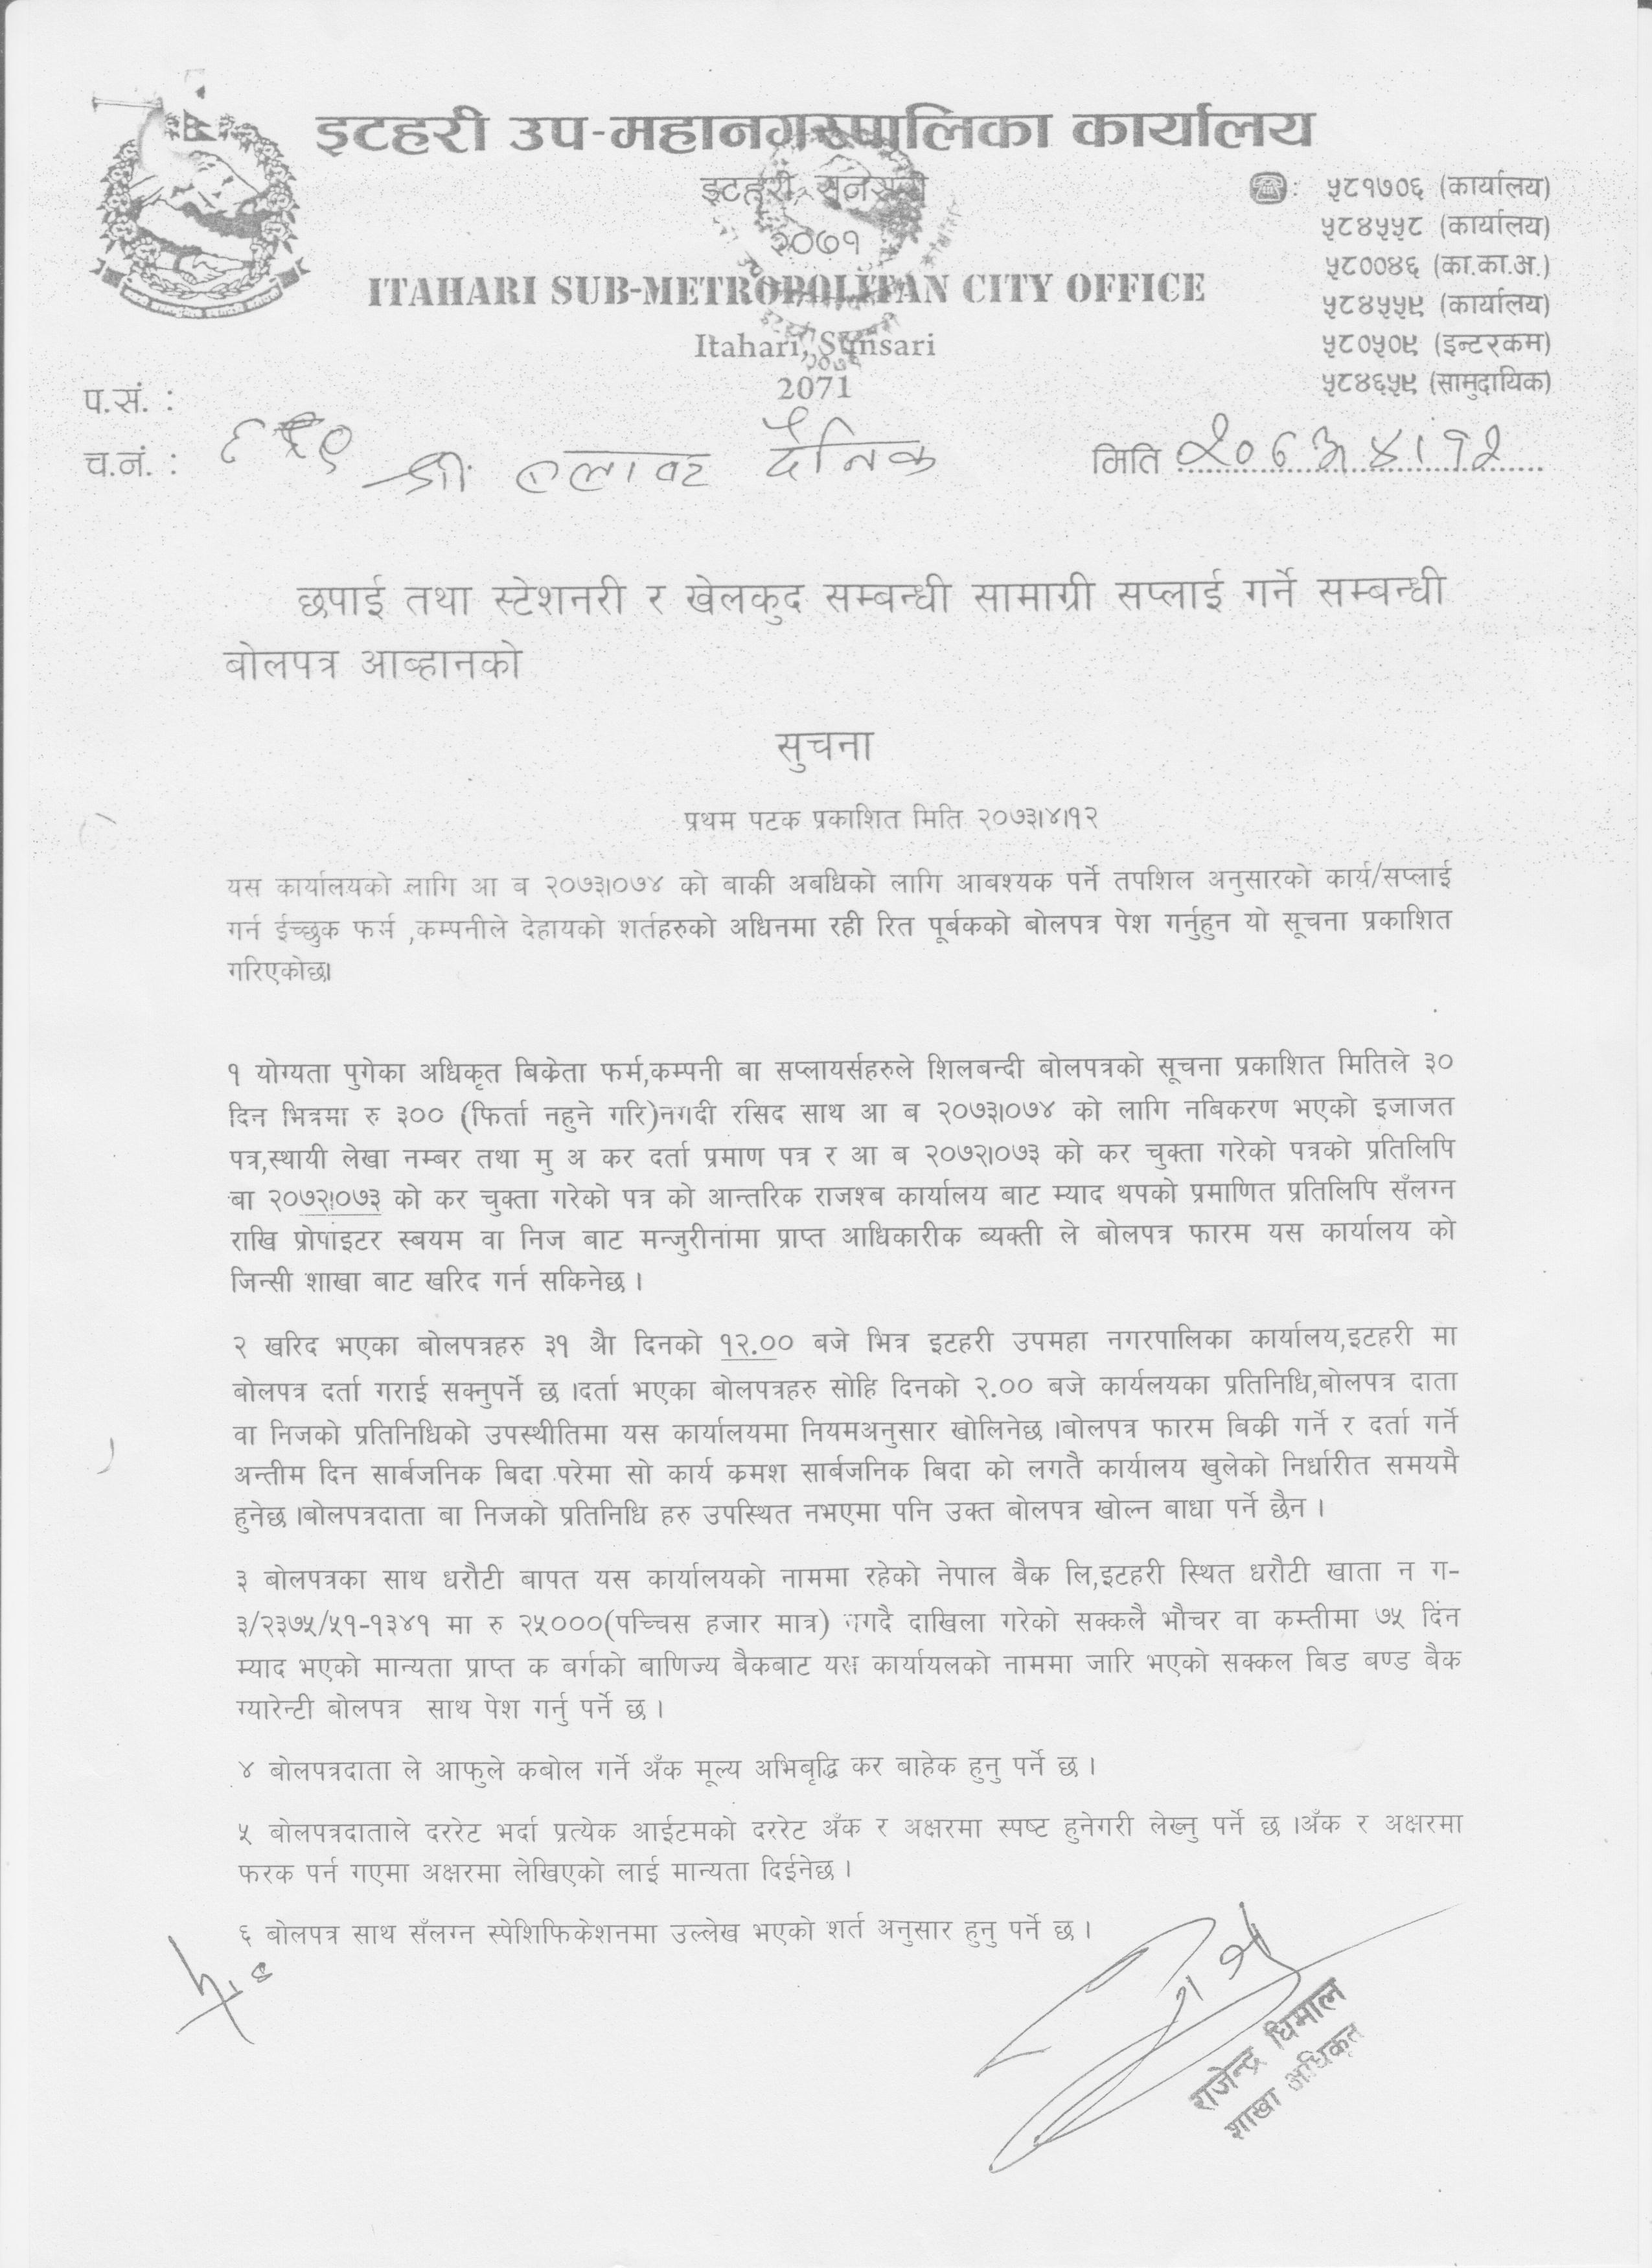 इटहरी उप-महानगरपालिका कार्यालय
इटहरी, सुनसरी
२०७१
ITAHARI SUB-METROPOLITAN CITY OFFICE
Itahari, Sunsari
2071
५८१७०६ (कार्यालय)
५८४५५८ (कार्यालय)
५८००४६ (का.का.अ.)
५८४५५९ (कार्यालय)
५८०५०९ (इन्टरकम)
५८४६५९ (सामुदायिक)
प.सं. :
च.नं. :
श्री ब्लाष्ट दैनिक
मिति २०७३।४।१२
छपाई तथा स्टेशनरी र खेलकुद सम्बन्धी सामाग्री सप्लाई गर्ने सम्बन्धी
बोलपत्र आब्हानको
सुचना
प्रथम पटक प्रकाशित मिति २०७३।४।१२
यस कार्यालयको लागि आ व २०७३।०७४ को वाकी अबधिको लागि आबश्यक पर्ने तपशिल अनुसारको कार्य/सप्लाई
गर्न ईच्छुक फर्म ,कम्पनीले देहायको शर्तहरुको अधिनमा रही रित पूर्बकको बोलपत्र पेश गर्नुहुन यो सूचना प्रकाशित
गरिएकोछ।
१ योग्यता पुगेका अधिकृत बिक्रेता फर्म,कम्पनी बा सप्लायर्सहरुले शिलबन्दी बोलपत्रको सूचना प्रकाशित मितिले ३०
दिन भित्रमा रु ३०० (फिर्ता नहुने गरि)नगदी रसिद साथ आ ब २०७३।०७४ को लागि नबिकरण भएको इजाजत
पत्र,स्थायी लेखा नम्बर तथा मु अ कर दर्ता प्रमाण पत्र र आ ब २०७२।०७३ को कर चुक्ता गरेको पत्रको प्रतिलिपि
बा २०७२।०७३ को कर चुक्ता गरेको पत्र को आन्तरिक राजश्ब कार्यालय बाट म्याद थपको प्रमाणित प्रतिलिपि सँलग्न
राखि प्रोपाइटर स्बयम वा निज बाट मन्जुरीनामा प्राप्त आधिकारीक ब्यक्ती ले बोलपत्र फारम यस कार्यालय को
जिन्सी शाखा बाट खरिद गर्न सकिनेछ ।
२ खरिद भएका बोलपत्रहरु ३१ औ दिनको १२.०० बजे भित्र इटहरी उपमहा नगरपालिका कार्यालय,इटहरी मा
बोलपत्र दर्ता गराई सक्नुपर्ने छ ।दर्ता भएका बोलपत्रहरु सोहि दिनको २.०० बजे कार्यलयका प्रतिनिधि,बोलपत्र दाता
वा निजको प्रतिनिधिको उपस्थीतिमा यस कार्यालयमा नियमअनुसार खोलिनेछ ।बोलपत्र फारम बिक्री गर्ने र दर्ता गर्ने
अन्तीम दिन सार्बजनिक बिदा परेमा सो कार्य क्रमश सार्बजनिक बिदा को लगतै कार्यालय खुलेको निर्धारीत समयमै
हुनेछ ।बोलपत्रदाता बा निजको प्रतिनिधि हरु उपस्थित नभएमा पनि उक्त बोलपत्र खोल्न बाधा पर्ने छैन ।
३ बोलपत्रका साथ धरौटी बापत यस कार्यालयको नाममा रहेको नेपाल बैक लि,इटहरी स्थित धरौटी खाता न ग-
३/२३७५/५१-१३४१ मा रु २५०००(पच्चिस हजार मात्र) नगदै दाखिला गरेको सक्कलै भौचर वा कम्तीमा ७५ दिन
म्याद भएको मान्यता प्राप्त क बर्गको बाणिज्य बैकबाट यस कार्यायलको नाममा जारि भएको सक्कल बिड बण्ड बैक
ग्यारेन्टी बोलपत्र साथ पेश गर्नु पर्ने छ ।
४ बोलपत्रदाता ले आफुले कबोल गर्ने अँक मूल्य अभिबृद्धि कर बाहेक हुनु पर्ने छ ।
५ बोलपत्रदाताले दररेट भर्दा प्रत्येक आईटमको दररेट अँक र अक्षरमा स्पष्ट हुनेगरी लेख्नु पर्ने छ ।अँक र अक्षरमा
फरक पर्न गएमा अक्षरमा लेखिएको लाई मान्यता दिईनेछ ।
६ बोलपत्र साथ सँलग्न स्पेशिफिकेशनमा उल्लेख भएको शर्त अनुसार हुनु पर्ने छ ।
राजेन्द्र धिमाल
शाखा अधिकृत